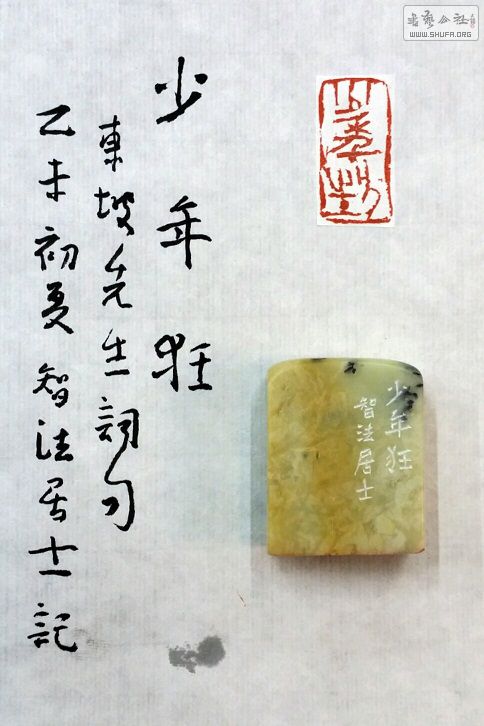 書藝公社
WWW.SHUFA.ORG
少年狂
少年狂
智法居士
少年狂
東坡先生詞句
乙未初夏智法居士記